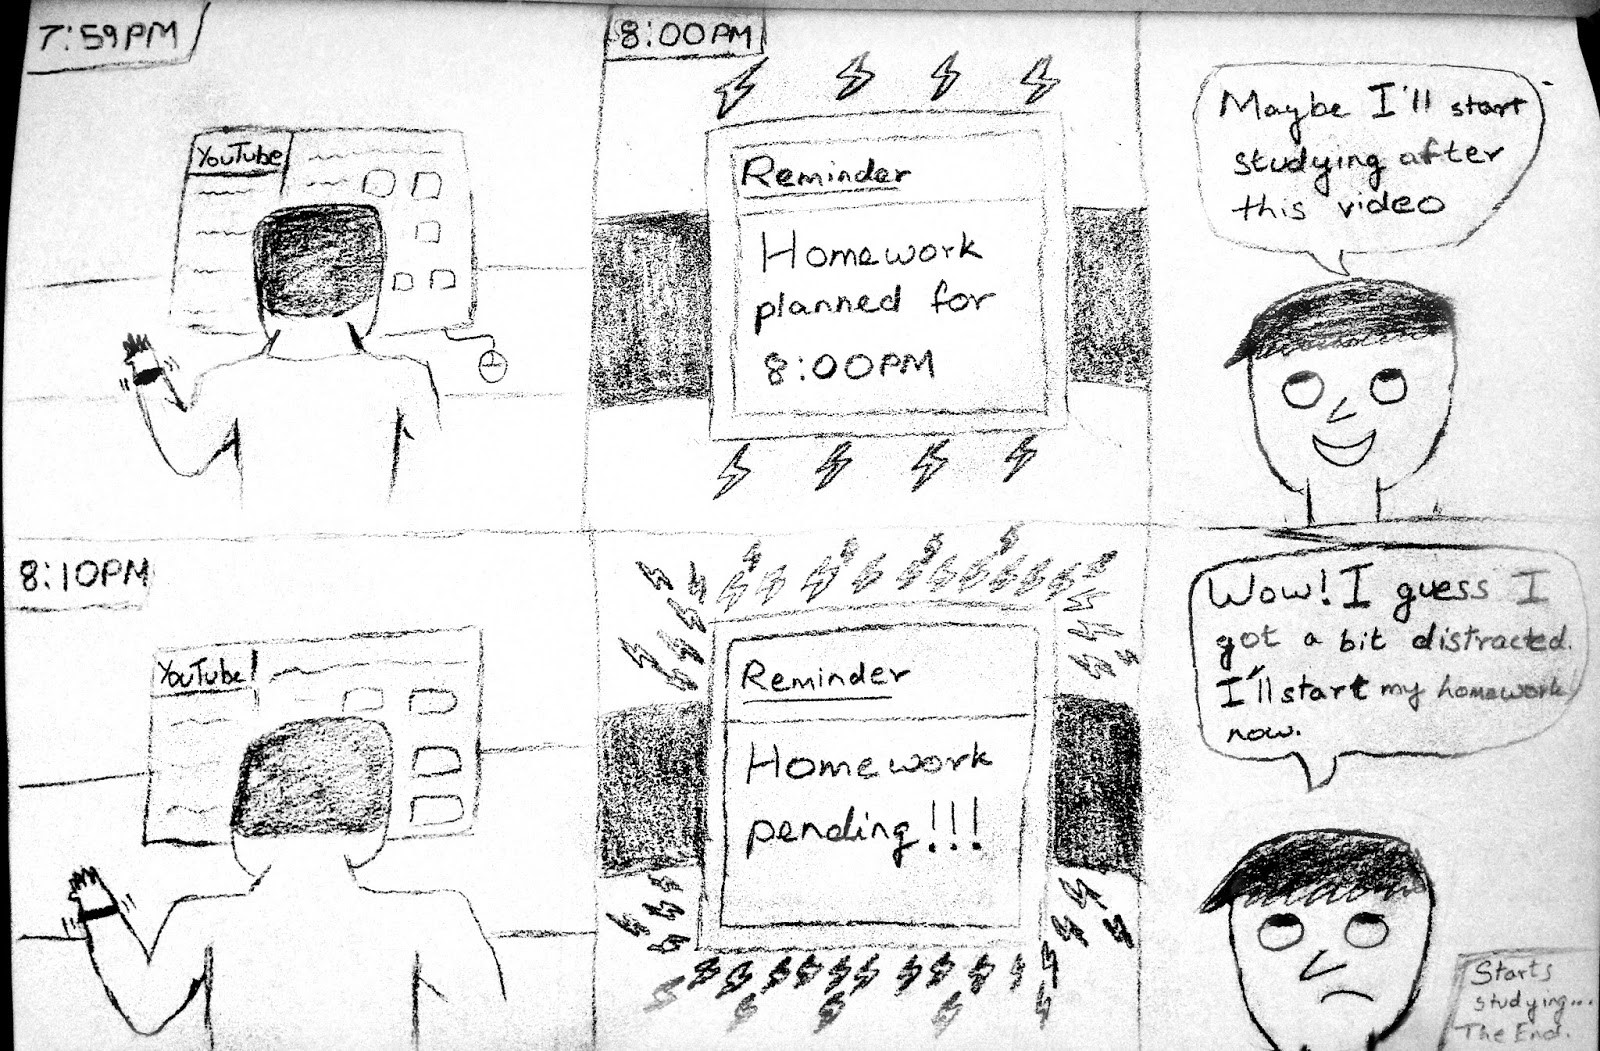 7:59PM
YouTube
8:00PM
Reminder
Homework
planned for
8:00PM
Maybe I'll start
studying after
this video
8:10PM
YouTube
Reminder
Homework
pending!!!
Wow! I guess I
got a bit distracted.
I'll start my homework
now.
Starts
studying...
The End.